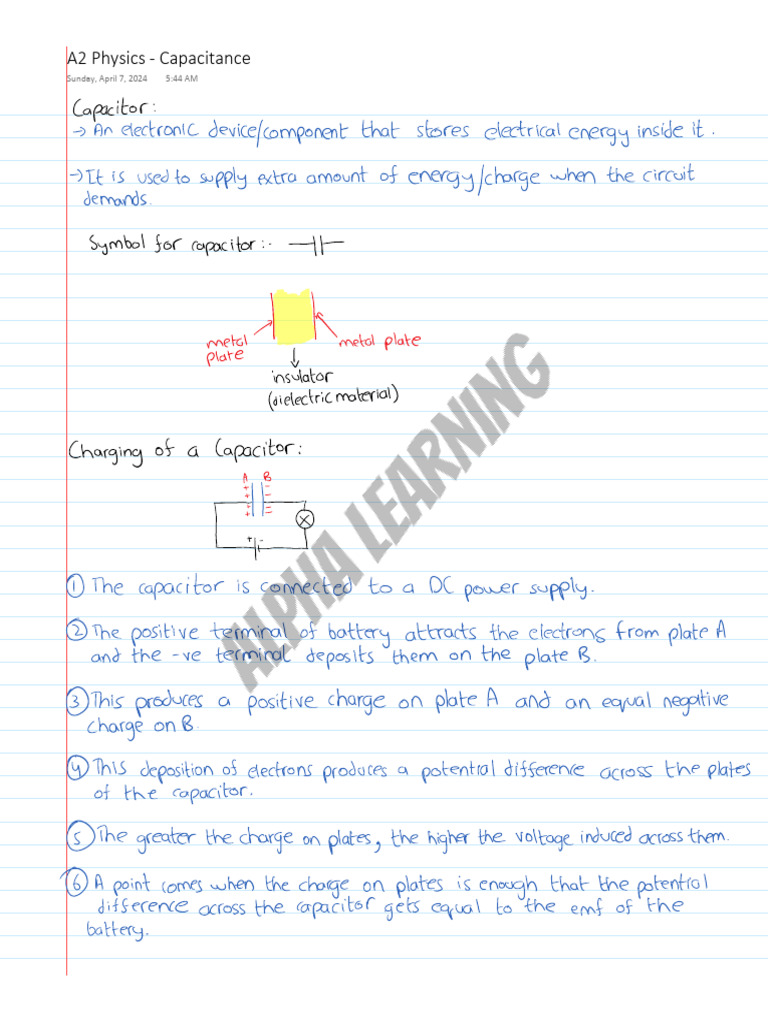 A2 Physics - Capacitance
Sunday, April 7, 2024 5:44 AM
Capacitor:
→ An electronic device/component that stores electrical energy inside it.
→ It is used to supply extra amount of energy/charge when the circuit
demands.
Symbol for capacitor:-
metal
plate
metal plate
insulator
(dielectric material)
Charging of a Capacitor:
A B
+ -
① The capacitor is connected to a DC power supply.
② The positive terminal of battery attracts the electrons from plate A
and the -ve terminal deposits them on the plate B.
③ This produces a positive charge on plate A and an equal negative
charge on B.
④ This deposition of electrons produces a potential difference across the plates
of the capacitor.
⑤ The greater the charge on plates, the higher the voltage induced across them.
⑥ A point comes when the charge on plates is enough that the potential
difference across the capacitor gets equal to the emf of the
battery.
ALPHA LEARNING